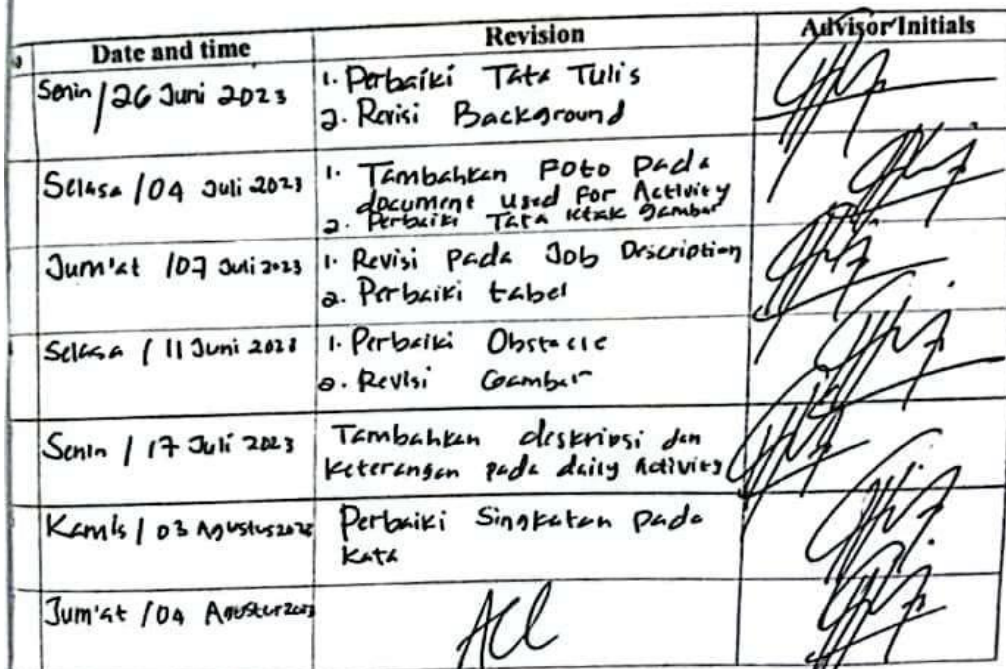 Date and time Revision Advisor Initials
Senin / 26 Juni 2023
1. Perbaiki Tata Tulis
2. Revisi Background
Selasa / 04 Juli 2023
1. Tambahkan Foto pada
document used For Activity
2. Perbaiki Tata letak gambar
Jum'at / 07 Juli 2023
1. Revisi pada Job Description
2. Perbaiki tabel
Selasa / 11 Juni 2023
1. Perbaiki Obstacle
2. Revisi Gambar
Senin / 17 Juli 2023
Tambahkan deskripsi dan
keterangan pada daily Activity
Kamis / 03 Agustus 2023
Perbaiki Singkatan pada
kata
Jum'at / 04 Agustus 2023
Acc